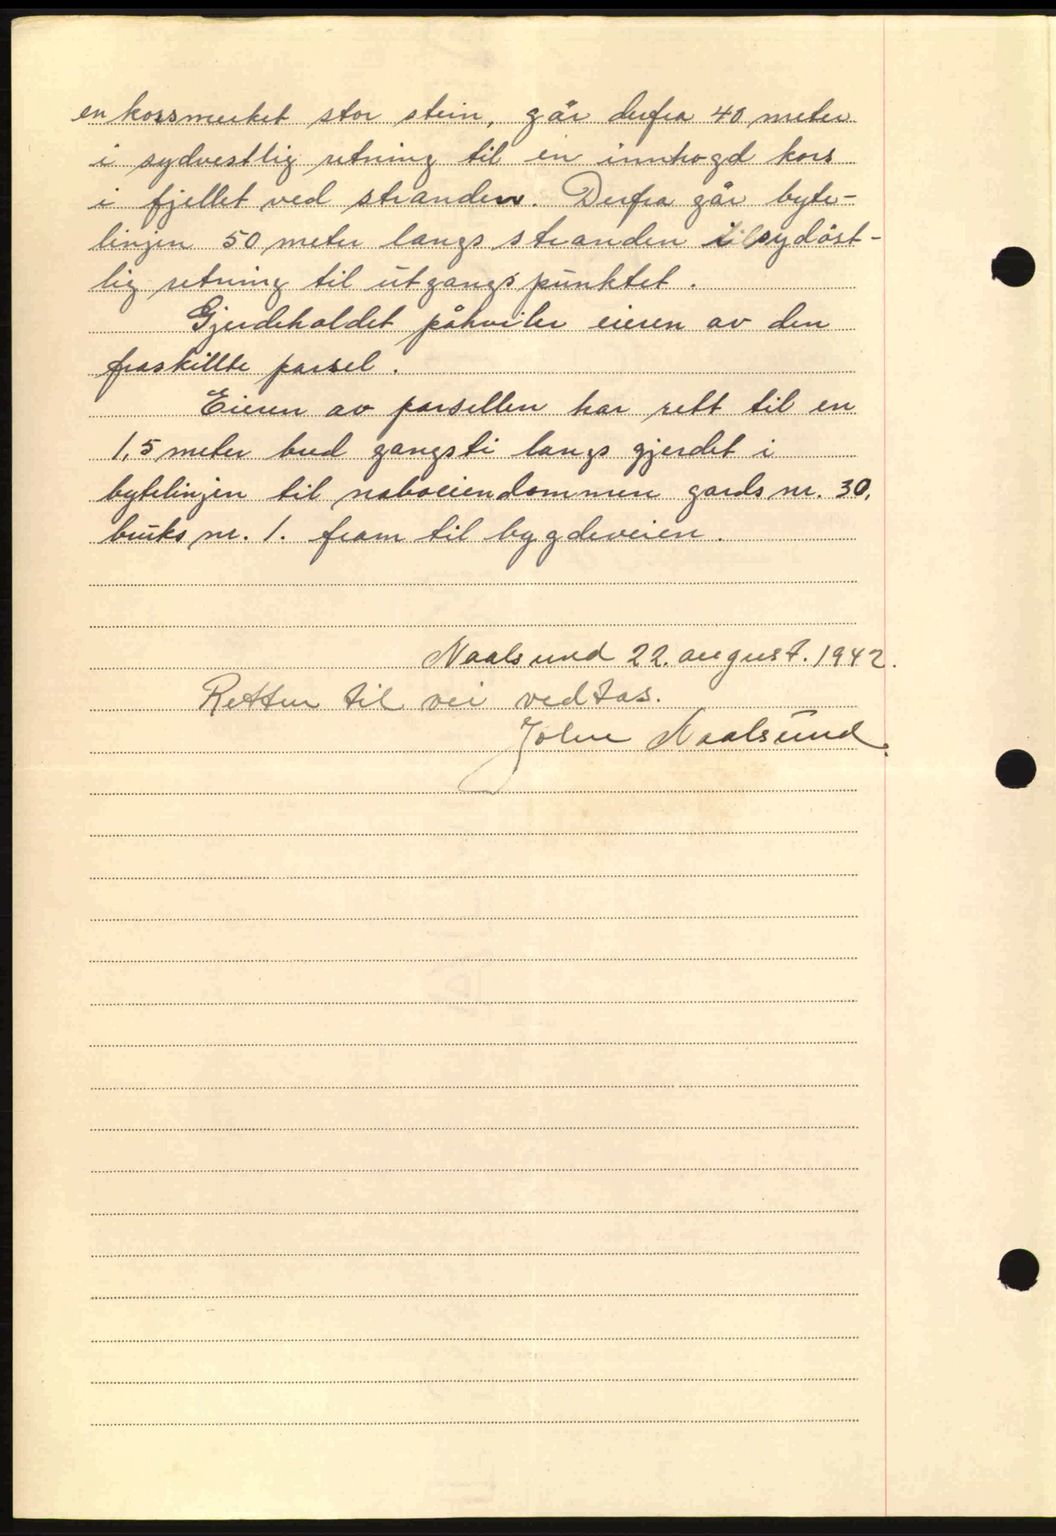 en korsmerket stor stein, går derfra 40 meter
i sydvestlig retning til en innhogd kors
i fjellet ved stranden. Derfra går byte-
linjen 50 meter langs stranden i sydöst-
lig retning til utgangspunktet.
Gjerdeholdet påhviler eieren av den
fraskillte parsel.
Eieren av parsellen har rett til en
1,5 meter bred gangsti langs gjerdet i
bytelinjen til naboeiendommen gards nr. 30,
bruks nr. 1. fram til bygdeveien.
Naalsund 22. august. 1942.
Retten til vei vedtas.
John Naalsund.